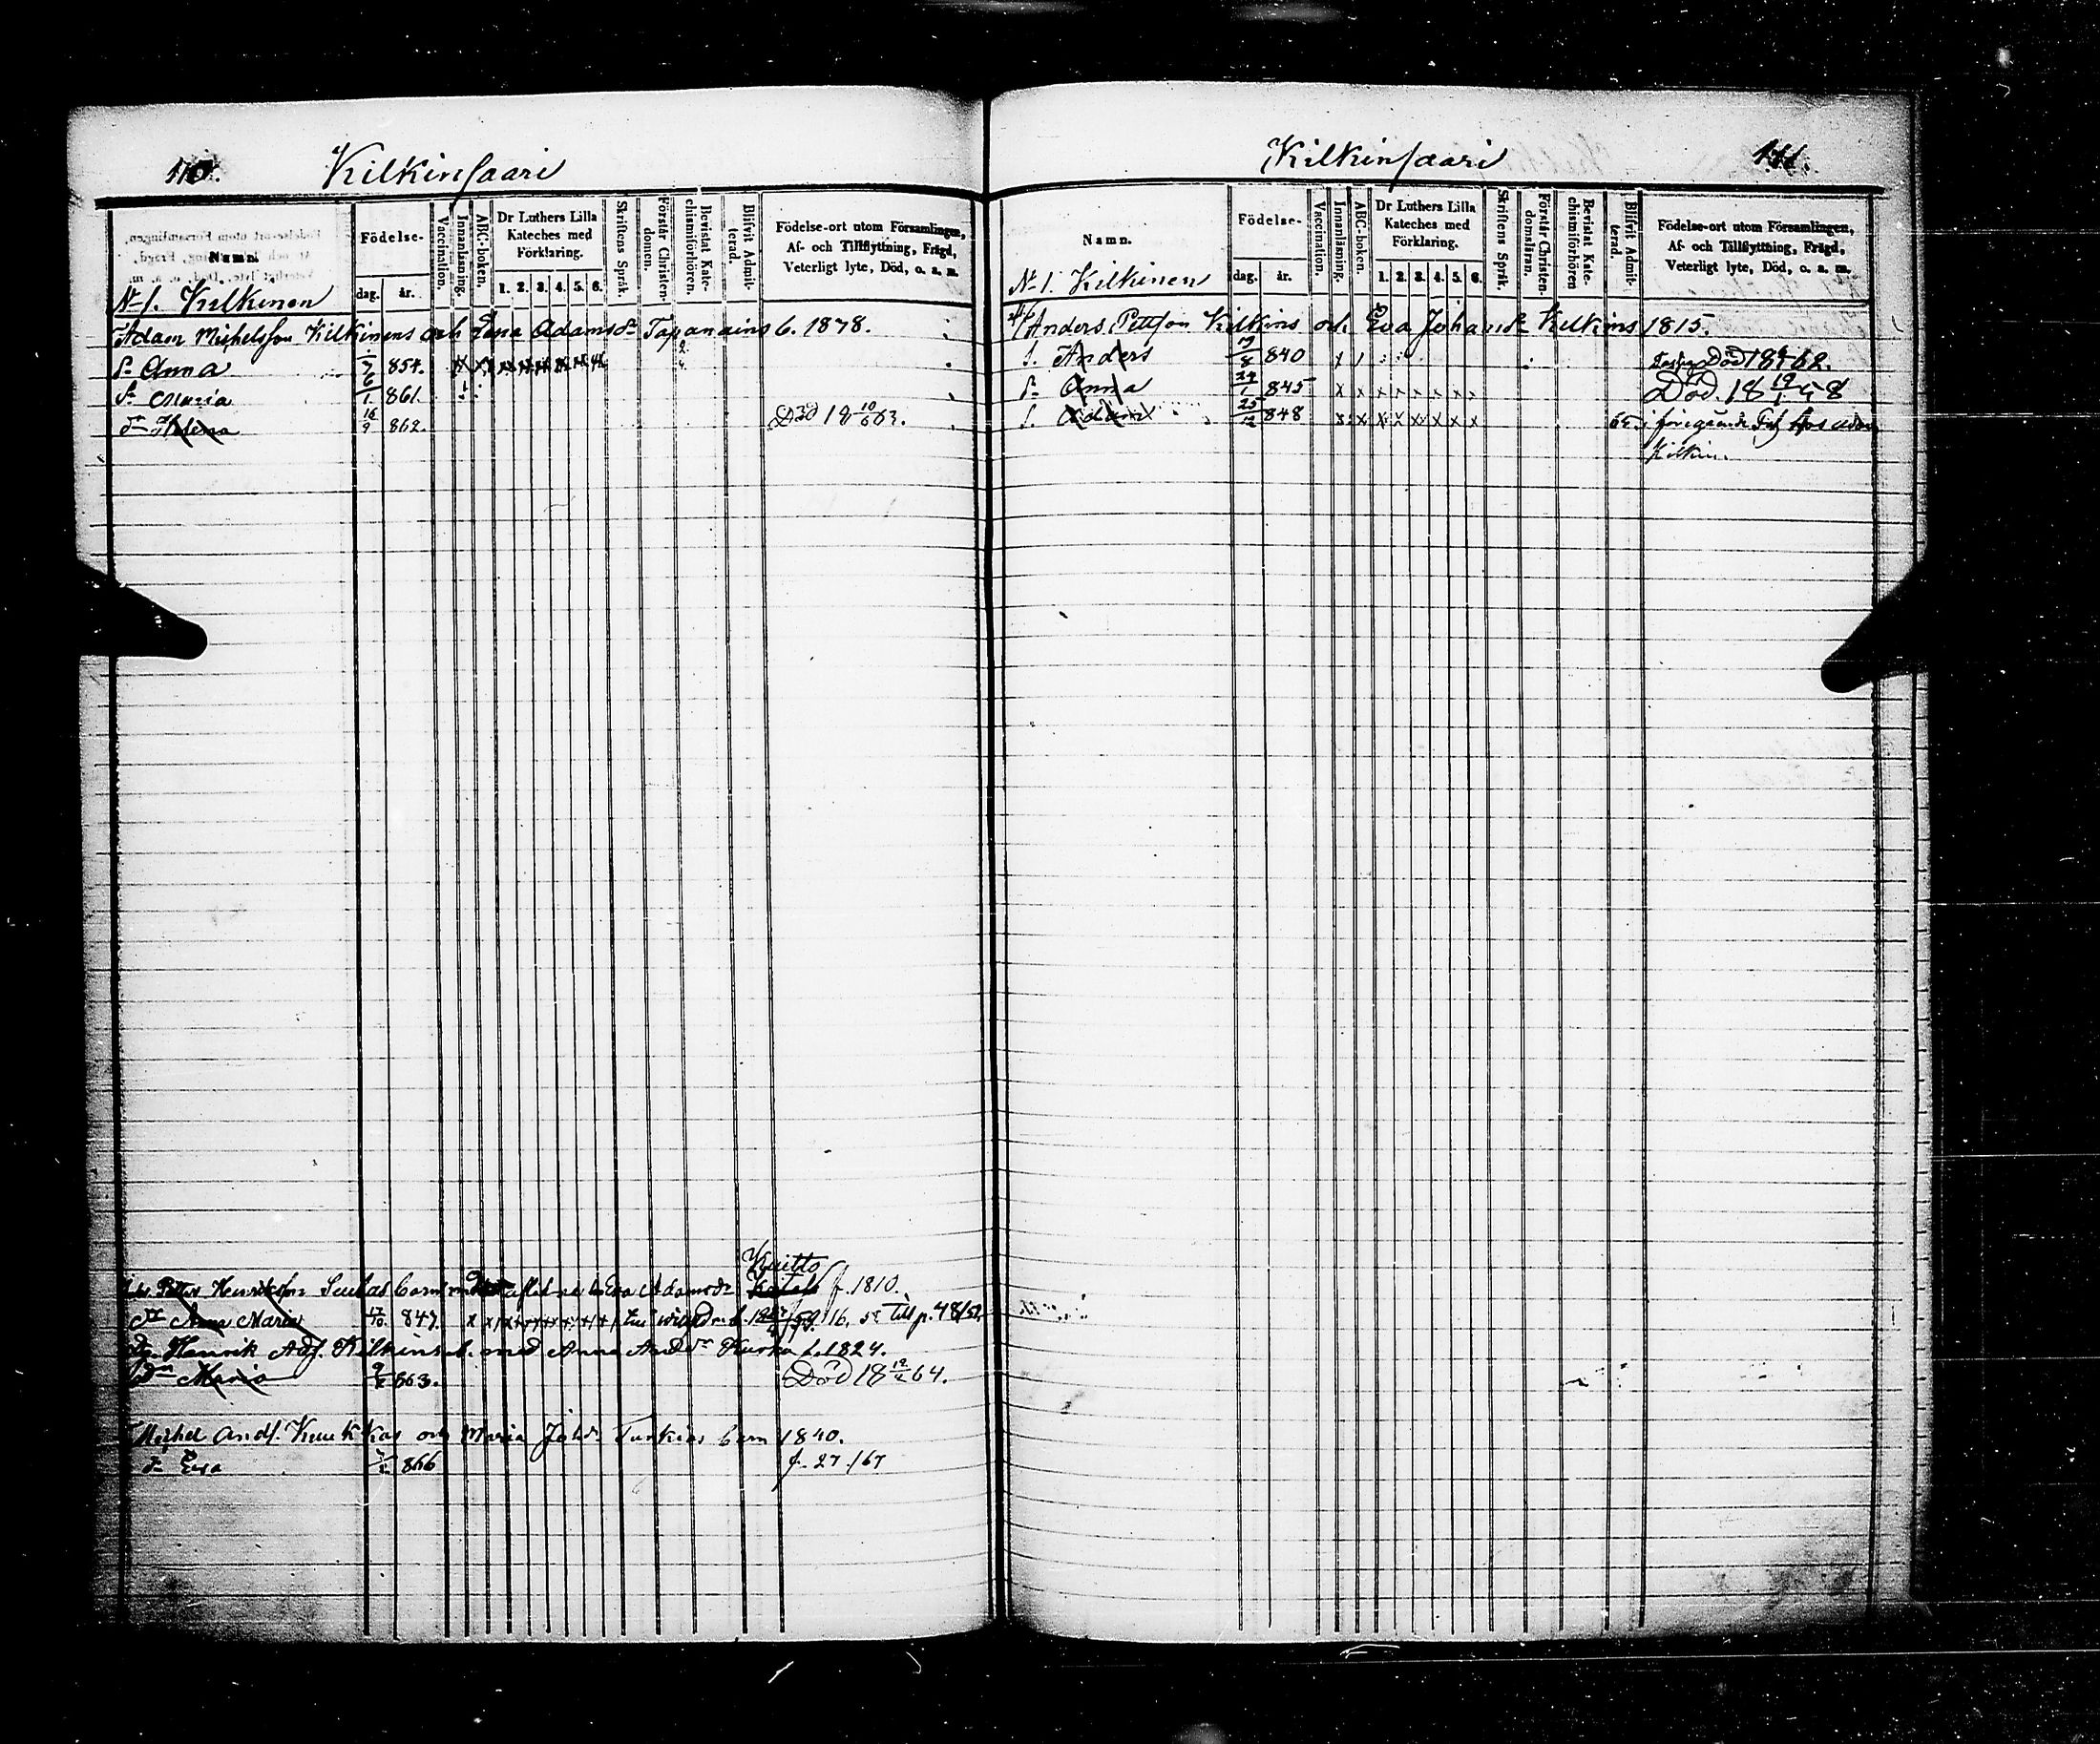 110.
Kilkinsaari
Namn.
Födelse-
dag.
år.
Vaccination.
Innanläsning.
ABC-boken.
Dr Luthers Lilla
Kateches med
Förklaring.
1. 2. 3. 4. 5. 6.
Skriftens Språk.
Förstår Christen-
domen.
Bevistat Kate-
chismiförhören.
Blifvit Admit-
terad.
Födelse-ort utom Församlingen,
Af- och Tillflyttning, Frägd,
Veterligt lyte, Död, o. s. m.
No 1. Kilkinen
Adam Michelsson Kilkinens och Lena Adamsdr Tapanains b. 1878.
Anna 7/6 854. x x x x x x x x
Maria 1 861.
Dr Helena 16/9 862. Död 18 10/6 63.
Kuitto
Petter Henriksson barn med Eva Adamsdr f. 1810.
Dr Anna Maria 847. Till p. 48
Henrik Adf. Kilkins b. med Anna Andrdr f. 1824.
Dr Maria 863. Död 18 12/2 64.
Michel Andf. Kuukkas och Maria Johdr Turkias barn 1840.
dr Eva 866 f. 27/67
Kilkinsaari
111.
Namn.
Födelse-
dag.
år.
Vaccination.
Innanläsning.
ABC-boken.
Dr Luthers Lilla
Kateches med
Förklaring.
1. 2. 3. 4. 5. 6.
Skriftens Språk.
Förstår Christen-
domsläran.
Bevistat Kate-
chismiförhören
Blifvit Admit-
terad.
Födelse-ort utom Församlingen,
Af- och Tillflyttning, Frägd,
Veterligt lyte, Död, o. s. m.
No 1. Kilkinen
Anders Pettsson Kilkins och Eva Johansdr Kilkins 1815.
S. Anders 7/8 840 Död 18 62.
Dr Anna 24/1 845 x x x x x x x x Död 18 12/1 58
S. Adam 25/12 848 x x x x x x x x 65. i föregående hos Adam
Kilkin.